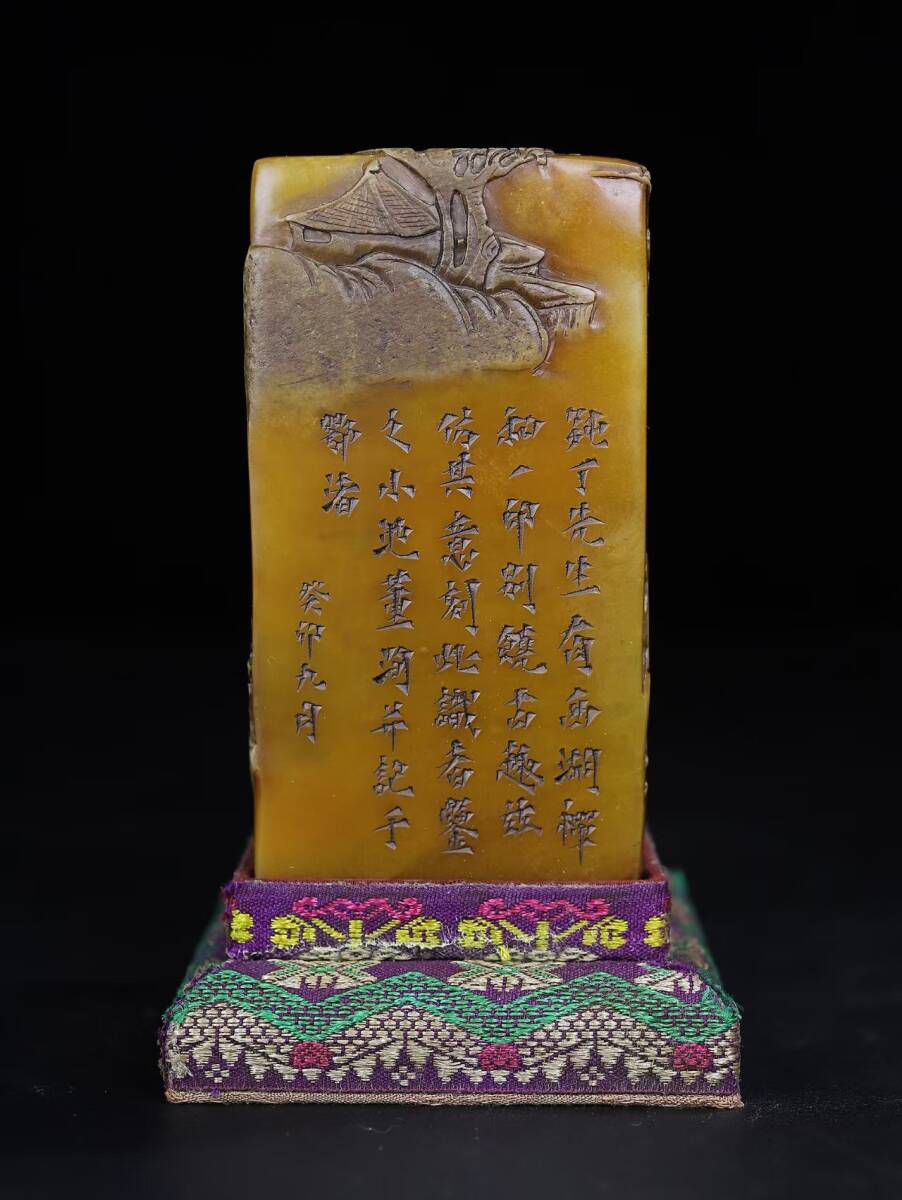 鈍丁先生有西湖禪
和一印別饒古趣茲
仿其意刻此識者鑒
之小池董洵并記于
鄂渚
癸卯九月